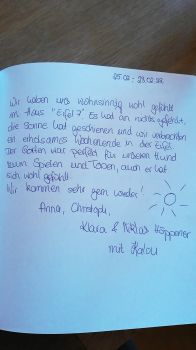 25.02 - 28.02.22
Wir haben uns wahnsinnig wohl gefühlt
im Haus "Eifel 7". Es hat an nichts gefehlt,
die Sonne hat geschienen und wir verbrachten
ein erholsames Wochenende in der Eifel.
Der Garten war perfekt für unseren Hund
zum Spielen und Toben, auch er hat
sich wohl gefühlt.
Wir kommen sehr gern wieder!
Anna, Christoph,
Klara & Niklas Höppener
mit Kalou